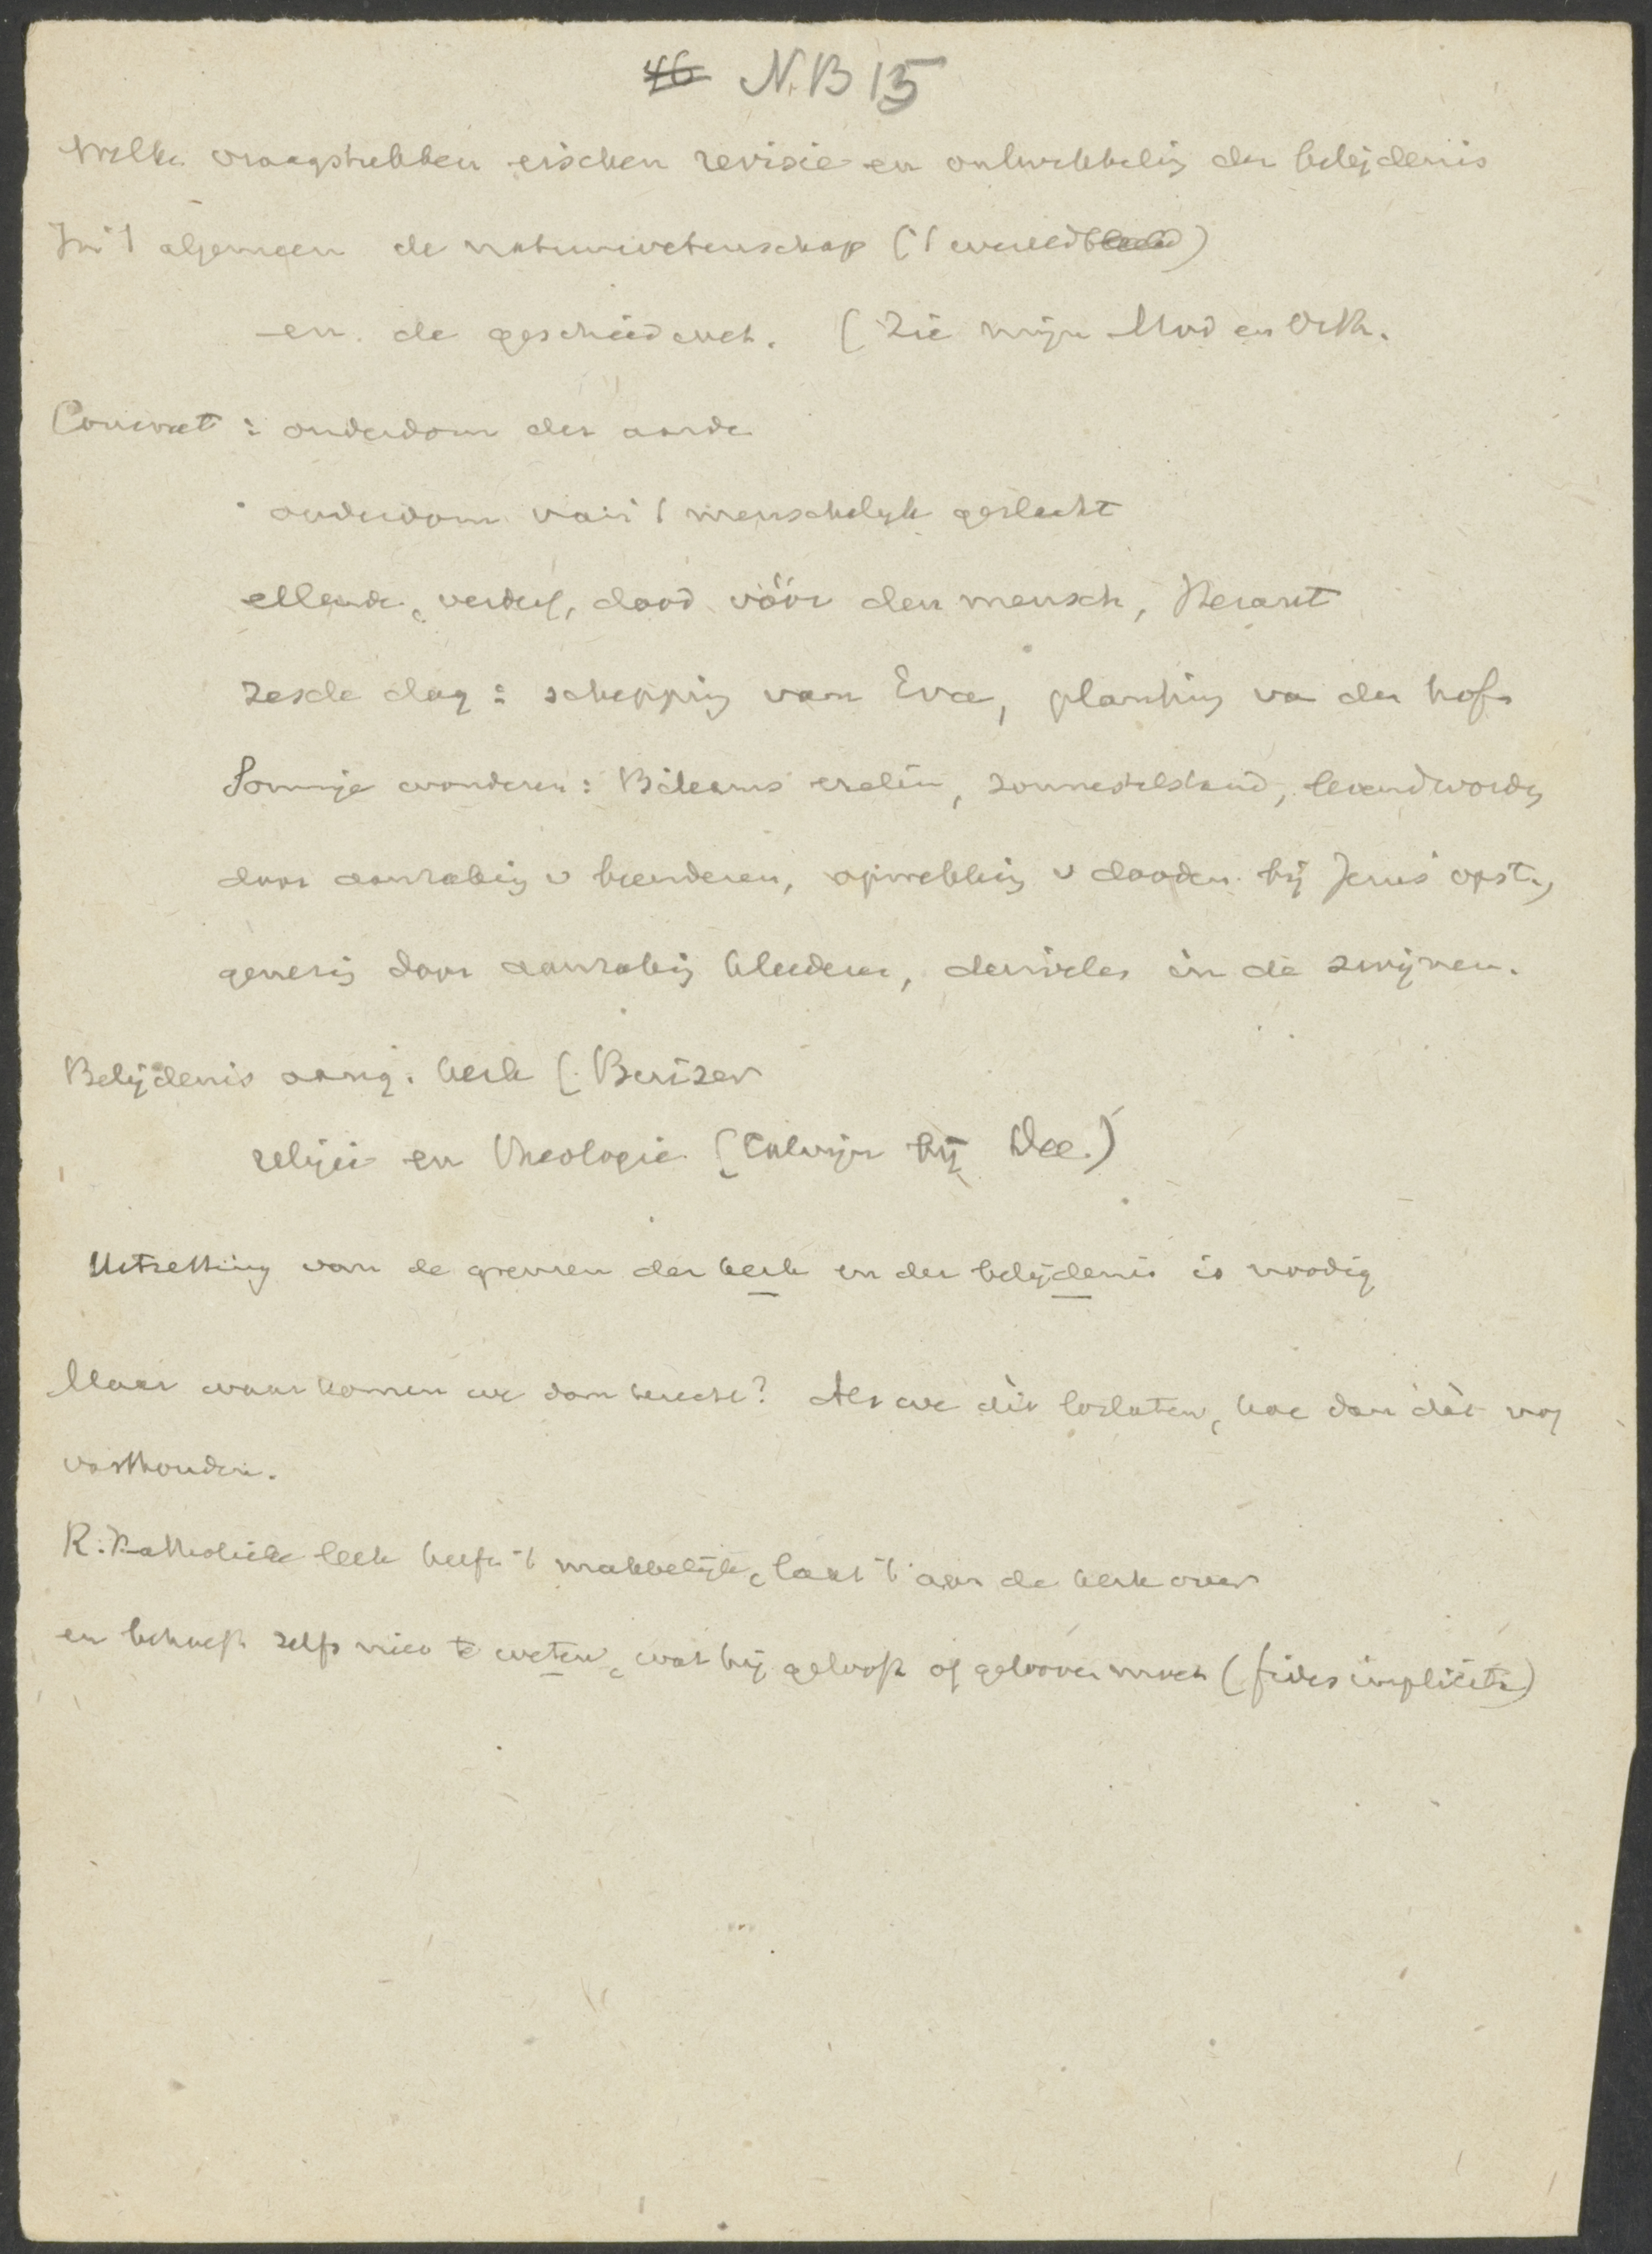 46 N.B 15
Welke vraagstukken eischen revisie en ontwikkeling der belijdenis
In 't algemeen de natuurwetenschap ('t wereldbeeld)
en de geschiedwet. (Zie mijn Mod en Orth.
Concreet: ouderdom der aarde
ouderdom van 't menschelijk geslacht
ellende, verderf, dood vóór den mensch,
zesde dag: schepping van Eva, planting van den hof
Sommige wonderen: Bileams ezelin, zonnestilstand, levendwording
door aanraking v beenderen, opwekking v dooden bij Jezus' opst.,
genezing door aanraking kleederen, duivelen in de zwijnen.
Belijdenis aang. kerk (
religie en theologie (Calvijn bij
Uitzetting van de grenzen der kerk en der belijdenis is noodig
Maar waar komen we dan terecht? Als we dit loslaten, hoe dan dàt nog
vasthouden.
R. Katholieke leek heeft 't makkelijk, laat 't aan de kerk over
en behoeft zelfs niet te weten, wat hij gelooft of gelooven moet (fides implicita)